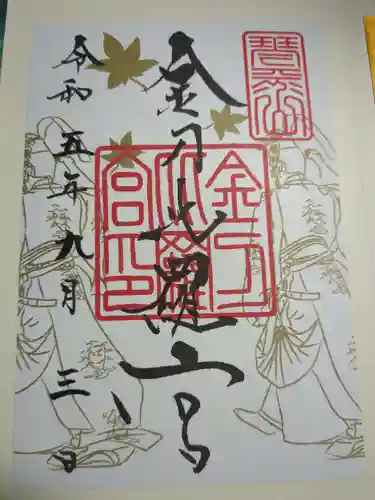 琴平山
金刀比羅宮
金刀比羅宮印
令和五年九月三日